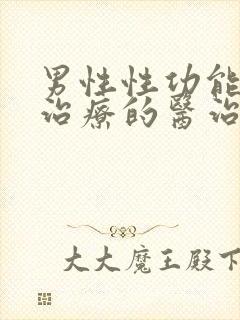 男性性功能
治療的醫治
大大魔王殿下